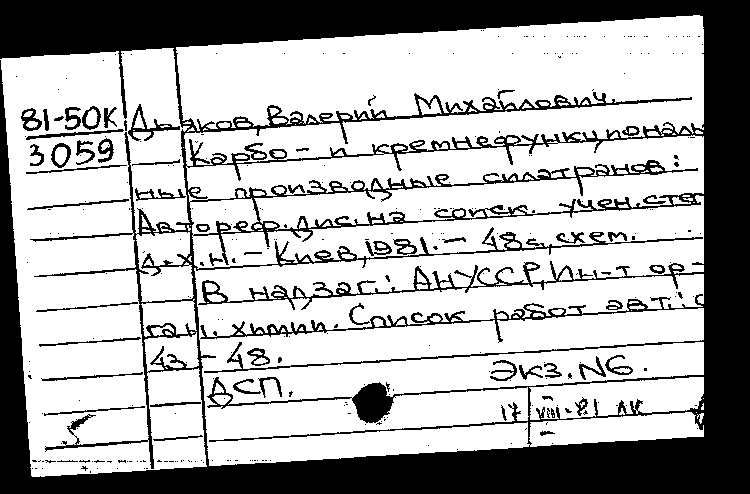 81-50К Дьяков, Валерий Михайлович.
3059 Карбо- и кремнефункциональ
ные производные силатранов:
Автореф. дис. на соиск. учен. степ
д.х.н. – Киев, 1981. – 48 с., схем.
В надзаг.: АН УССР, Ин-т ор-
ган. химии. Список работ авт.: с
43 – 48.
ДСП. Экз. N6.
17 VIII-81 ЛК